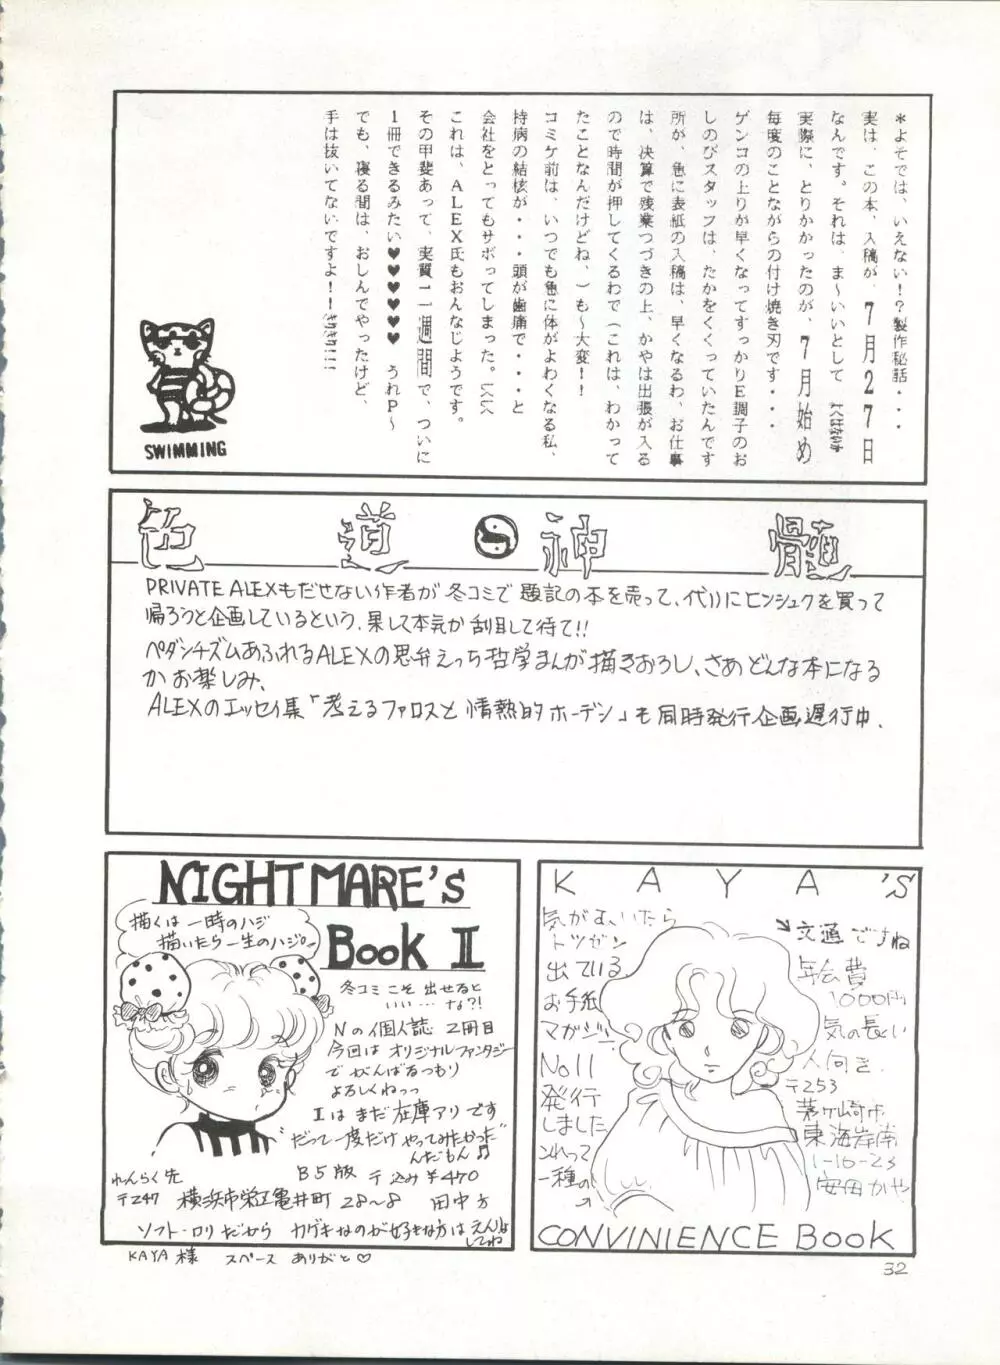 ＊よそでは、いえない！？製作秘話・・・
実は、この本、入稿が、７月２７日
なんです。それは、ま～いいとして よくはないけど
実際に、とりかかったのが、７月始め
毎度のことながらの付け焼き刃です・・・
ゲンコの上りが早くなってすっかりＥ調子のお
しのびスタッフは、たかをくくっていたんです
所が、急に表紙の入稿は、早くなるわ、お仕事
は、決算で残業つづきの上、かやは出張が入る
ので時間が押してくるわで（これは、わかって
たことなんだけどね、）も～大変！！
コミケ前は、いつでも急に体がよわくなる私、
持病の結核が・・・頭が歯痛で・・・と
会社をとってもサボってしまった。
これは、ＡＬＥＸ氏もおんなじようです。
その甲斐あって、実質１１週間で、ついに
１冊できるみたい♥♥♥♥♥ うれＰ～
でも、寝る間は、おしんでやったけど、
手は抜いてないですよ！！
SWIMMING
色道☯神髄
PRIVATE ALEXもだせない作者が冬コミで題記の本を売って、代りにヒンシュクを買って
帰ろうと企画しているという、果して本気か刮目して待て!!
ペダンチズムあふれるALEXの思弁えっち哲学まんが描きおろし、さあどんな本になる
かお楽しみ、
ALEXのエッセイ集「考えるファロスと情熱的ホーデン」も同時発行企画進行中.
NIGHTMARE'S
Book II
描くは一時のハジ
描いたら一生のハジ。
冬コミこそ出せると
いい…な?!
Nの個人誌 2冊目
今回はオリジナルファンタジー
でがんばるつもり
よろしくねっっ
Iはまだ在庫アリです
"だって一度だけやってみたかった"
んだもん♫
B5版 〒込み¥470
れんらく先
〒247 横浜市栄区亀井町 28〜8 田中方
ソフト・ロリだから カゲキなのが好きな方は えんりょ
してね
KAYA様 スペース ありがと♡
KAYA'S
気がむいたら
トツゼン
出ている
お手紙
マガジン.
No11
発行
しました
これって
一種の
文通ですね
年会費
1000円
気の長い
人向き.
〒253
茅ケ崎市
東海岸南
1-16-23
安田かや
CONVINIENCE Book
32